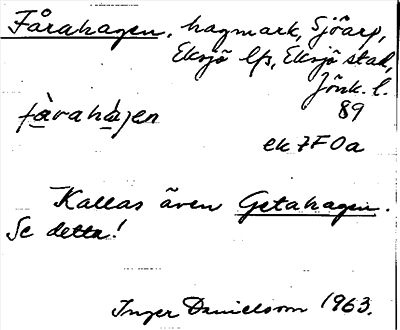 Fårahagen, hagmark, Sjöarp,
Eksjö lfs, Eksjö stad,
Jönk. l.
89
fàrahàjen
ek 7F0a
Kallas även Getahagen.
Se detta!
Inger Danielsson 1963.